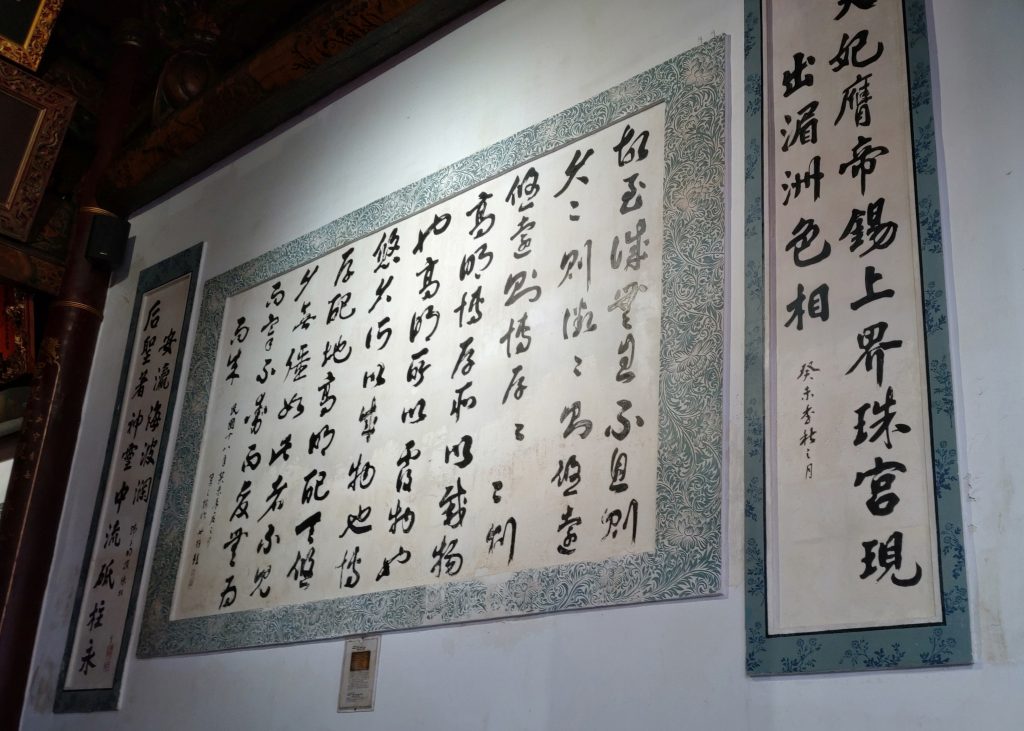 天妃膺帝錫上界珠宮現
出湄洲色相
癸未季秋之月
故至誠無息不息則
久〻則徵〻則悠遠
悠遠則博厚〻〻則
高明博厚所以載物
也高明所以覆物也
悠久所以成物也博
厚配地高明配天悠
久無疆如此者不見
而章不動而變無為
而成
后聖著神靈中流砥柱永
安流海波瀾